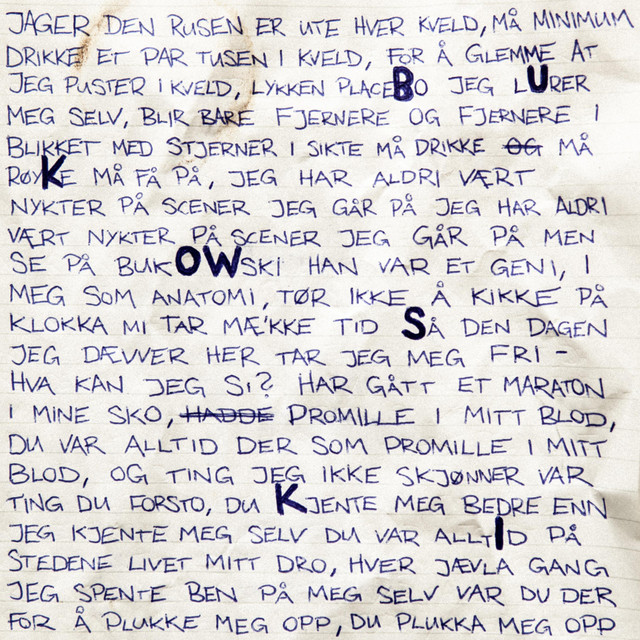 JAGER DEN RUSEN ER UTE HVER KVELD, MÅ MINIMUM
DRIKKE ET PAR TUSEN I KVELD, FOR Å GLEMME AT
JEG PUSTER I KVELD, LYKKEN PLACEBO JEG LURER
MEG SELV, BLIR BARE FJERNERE OG FJERNERE I
BLIKKET MED STJERNER I SIKTE MÅ DRIKKE OG MÅ
RØYKE MÅ FÅ PÅ, JEG HAR ALDRI VÆRT
NYKTER PÅ SCENER JEG GÅR PÅ JEG HAR ALDRI
VÆRT NYKTER PÅ SCENER JEG GÅR PÅ MEN
SE PÅ BUKOWSKI HAN VAR ET GENI, I
MEG SOM ANATOMI, TØR IKKE Å KIKKE PÅ
KLOKKA MI TAR MÆ'KKE TID SÅ DEN DAGEN
JEG DÆVVER HER TAR JEG MEG FRI -
HVA KAN JEG SI? HAR GÅTT ET MARATON
I MINE SKO, HADDE PROMILLE I MITT BLOD,
DU VAR ALLTID DER SOM PROMILLE I MITT
BLOD, OG TING JEG IKKE SKJØNNER VAR
TING DU FORSTO, DU KJENTE MEG BEDRE ENN
JEG KJENTE MEG SELV DU VAR ALLTID PÅ
STEDENE LIVET MITT DRO, HVER JÆVLA GANG
JEG SPENTE BEN PÅ MEG SELV VAR DU DER
FOR Å PLUKKE MEG OPP, DU PLUKKA MEG OPP